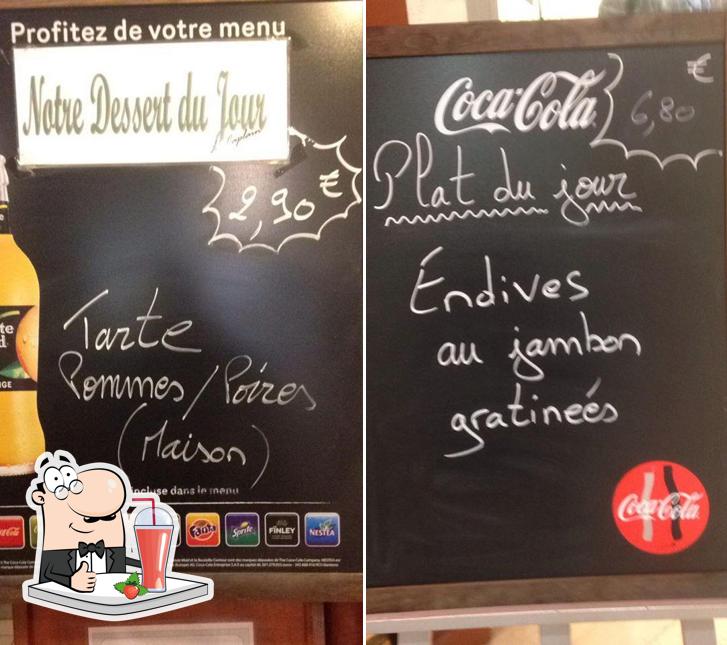 Profitez de votre menu
Notre Dessert du Jour
2,90 €
Tarte
Pommes / Poires
(Maison)
incluse dans le menu
Sprite
FïNLEY
NESTEA
Coca-Cola
6,80 €
Plat du jour
Endives
au jambon
gratineés
Coca-Cola